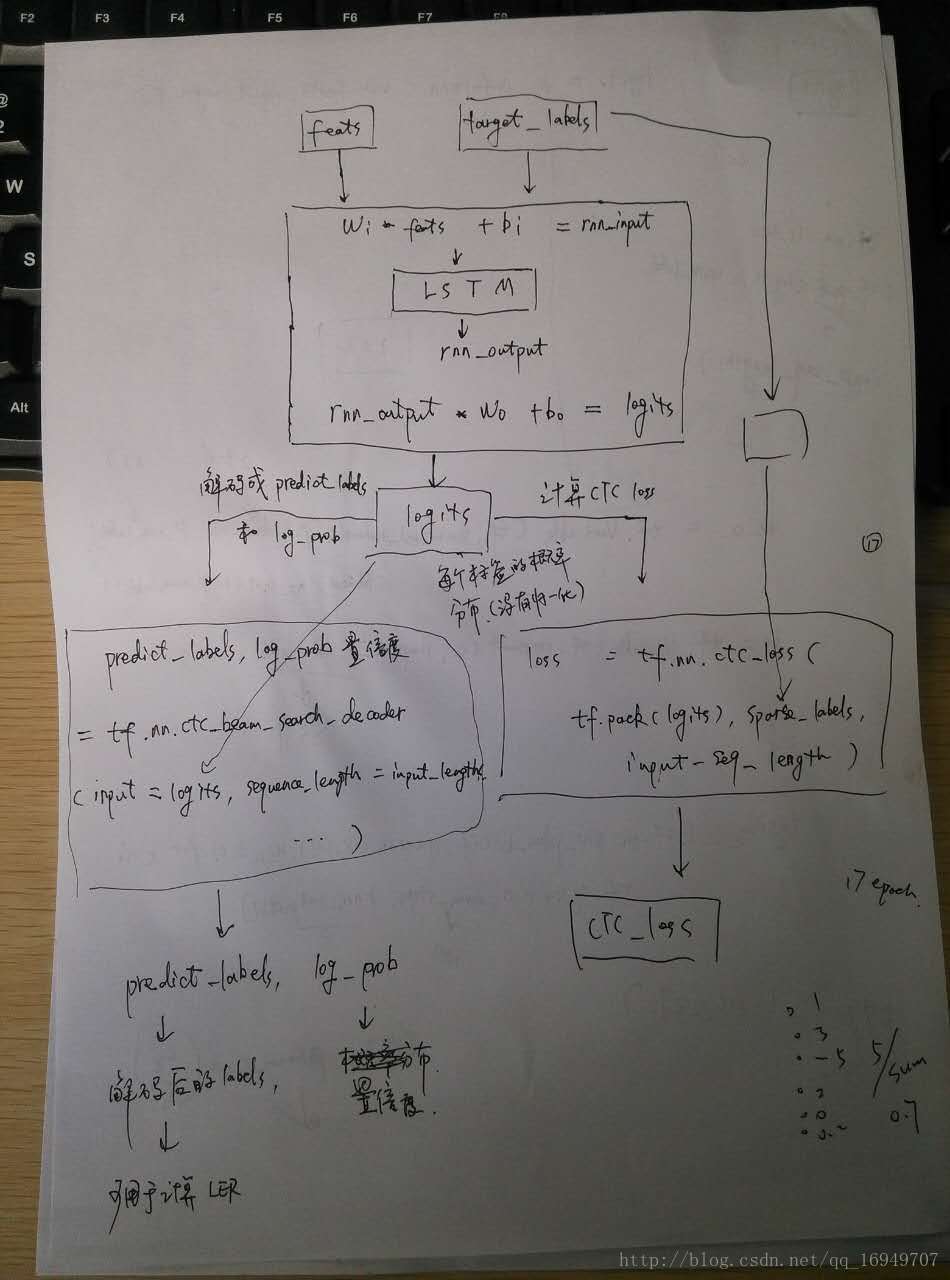 F2 F3 F4 F5 F6 F7 F8
@
2
W
S
Alt
feats
target_labels
Wi * feats + bi = rnn_input
LSTM
rnn_output
rnn_output * Wo + bo = logits
解码成 predict_labels
和 log_prob
logits
计算 CTC loss
每个标签的概率
分布(没有归一化)
17
predict_labels, log_prob 置信度
= tf.nn.ctc_beam_search_decoder
( input = logits, sequence_length = input_lengths
... )
loss = tf.nn.ctc_loss (
tf.pack(logits), sparse_labels,
input_seq_length )
CTC_loss
17 epoch.
predict_labels, log_prob
解码后的labels,
分布.
置信度.
可用于计算 LER
1
3
-5
5/sum
0
0.7
http://blog.csdn.net/qq_16949707